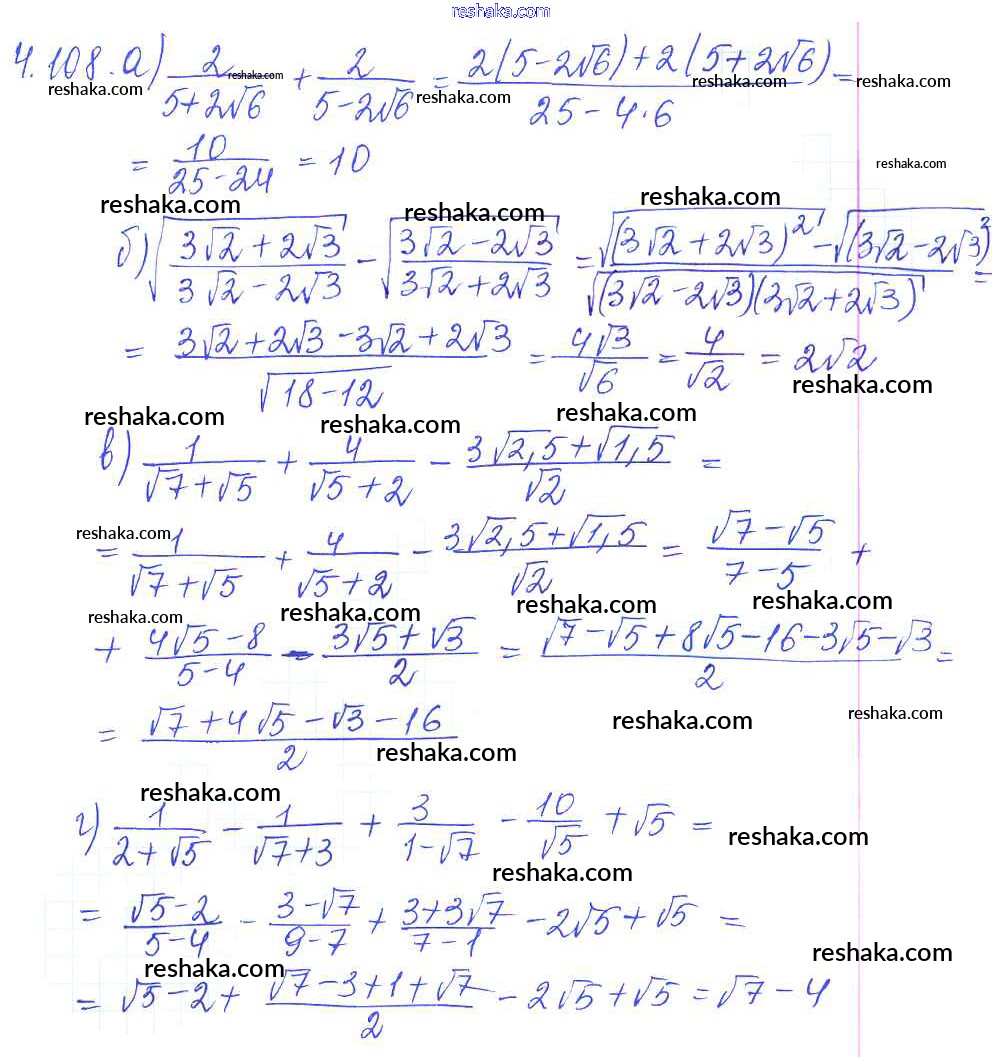 reshaka.com
4.108. а) 2/(5+2√6) + 2/(5-2√6) = (2(5-2√6)+2(5+2√6))/(25-4·6) =
reshaka.com reshaka.com reshaka.com reshaka.com reshaka.com
= 10/(25-24) = 10
reshaka.com
reshaka.com reshaka.com reshaka.com
б) √((3√2+2√3)/(3√2-2√3)) - √((3√2-2√3)/(3√2+2√3)) = (√((3√2+2√3)²) - √((3√2-2√3)²))/√((3√2-2√3)(3√2+2√3)) =
= (3√2+2√3-3√2+2√3)/√(18-12) = 4√3/√6 = 4/√2 = 2√2
reshaka.com
reshaka.com reshaka.com reshaka.com
в) 1/(√7+√5) + 4/(√5+2) - (3√2,5+√1,5)/√2 =
reshaka.com
= 1/(√7+√5) + 4/(√5+2) - (3√2,5+√1,5)/√2 = (√7-√5)/(7-5) +
reshaka.com reshaka.com reshaka.com reshaka.com
+ (4√5-8)/(5-4) - (3√5+√3)/2 = (√7-√5+8√5-16-3√5-√3)/2 =
= (√7+4√5-√3-16)/2
reshaka.com reshaka.com reshaka.com
reshaka.com
г) 1/(2+√5) - 1/(√7+3) + 3/(1-√7) - 10/√5 + √5 =
reshaka.com
reshaka.com
= (√5-2)/(5-4) - (3-√7)/(9-7) + (3+3√7)/(7-1) - 2√5+√5 =
reshaka.com reshaka.com reshaka.com
= √5-2+ (√7-3+1+√7)/2 - 2√5+√5 = √7-4